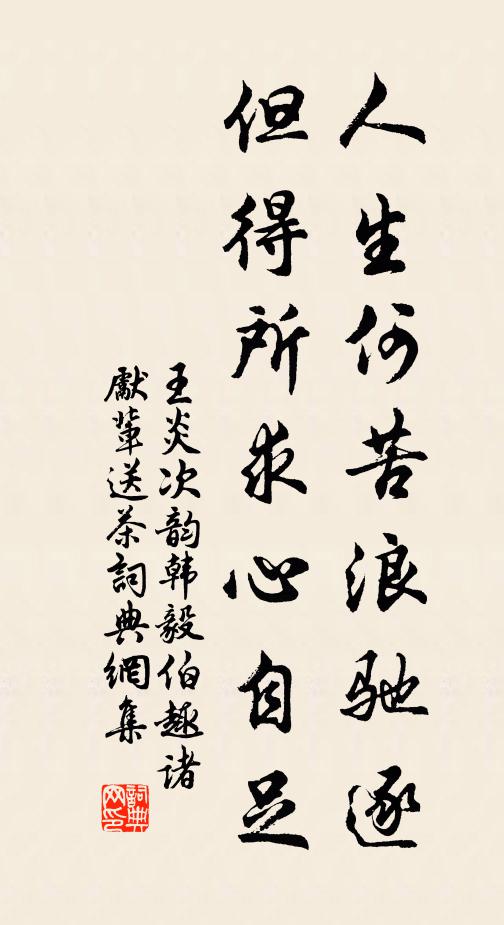 人生何苦浪馳逐
但得所求心自足
王炎次韵韩毅伯趣诸
獻輩送茶詞典網集
詞典网印